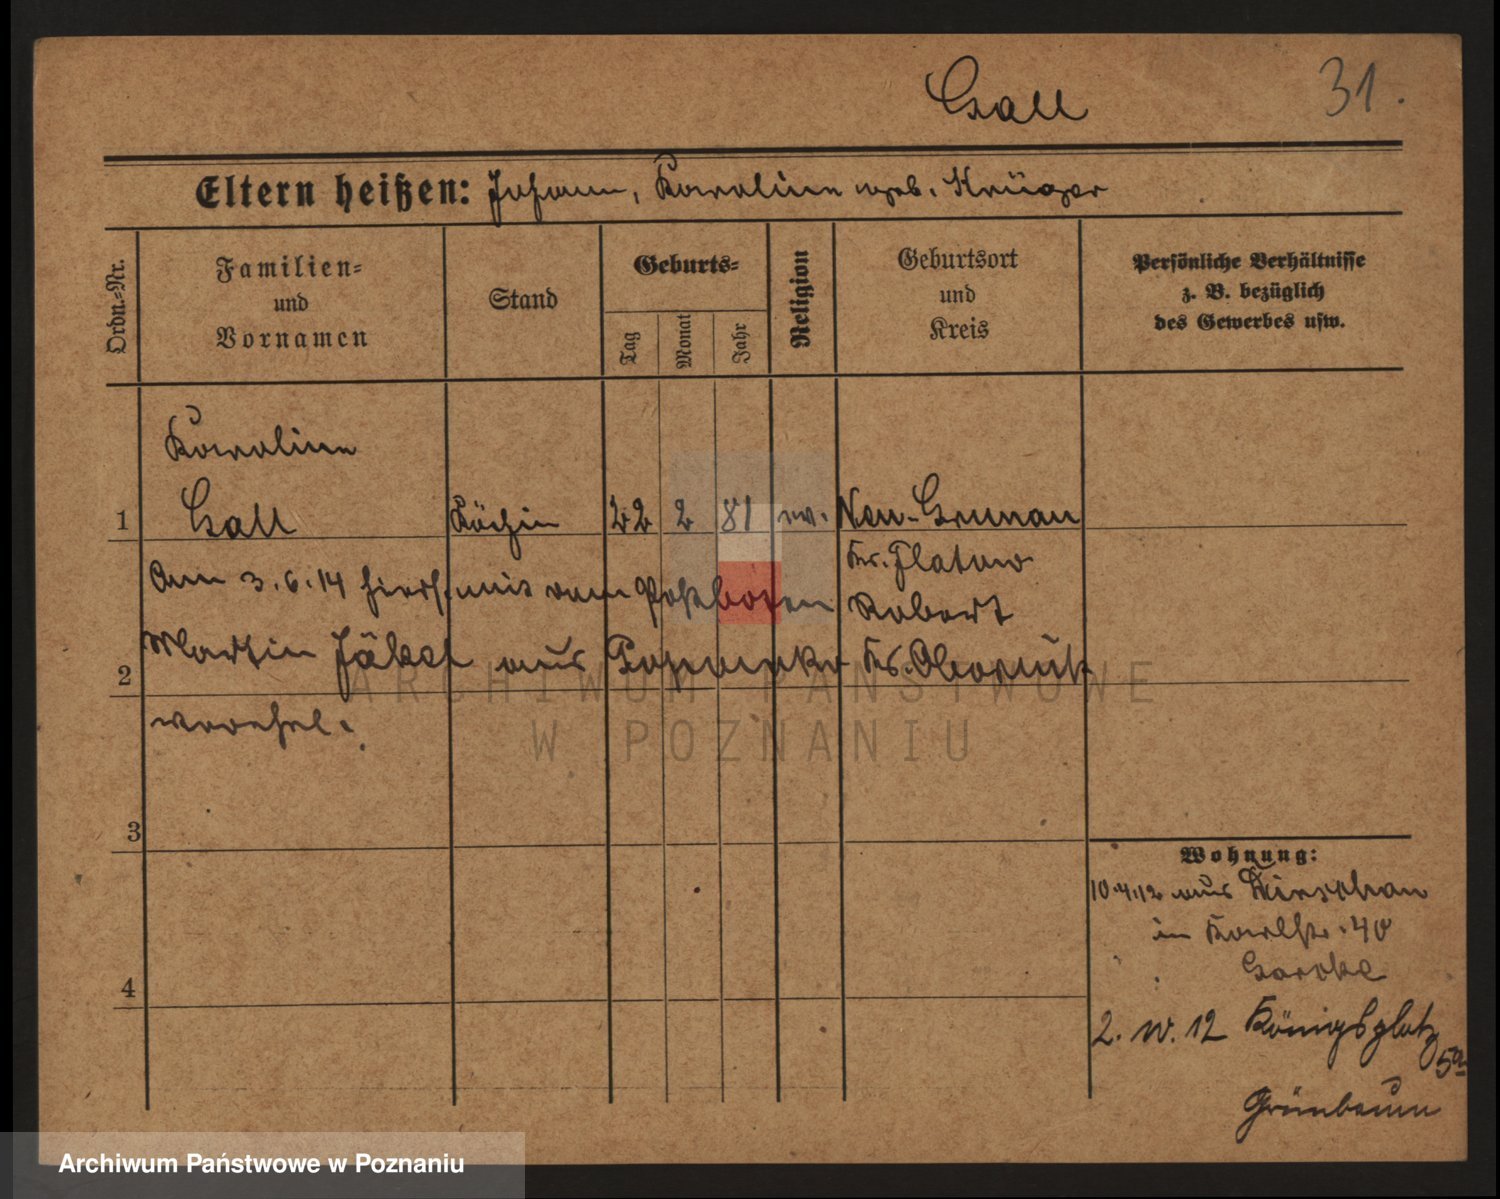 Gall
31.
Eltern heißen: Johann, Karoline geb. Krüger
Ordn.-Nr.
Familien-
und
Vornamen
Stand
Geburts-
Tag
Monat
Jahr
Religion
Geburtsort
und
Kreis
Persönliche Verhältnisse
z. B. bezüglich
des Gewerbes usw.
Karoline
1 Gall Köchin 22 2 81 ev. Neu-Grunau
Kr. Flatow
Am 3.6.14 hiers. mit dem Postboten Robert
2 Martin Jäkel aus Kr. Obornik
verehel.
3
4
Wohnung:
10.4.12 aus Dirschau
in Karlstr. 40
2. IV. 12 Königsplatz
5a
Grünbaum
ARCHIWUM PAŃSTWOWE
W POZNANIU
Archiwum Państwowe w Poznaniu